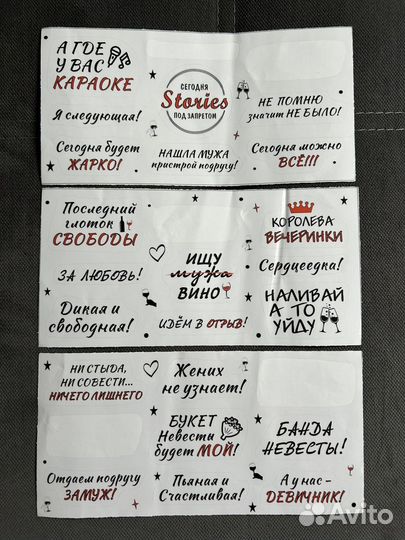 А ГДЕ
У ВАС
КАРАОКЕ
Я следующая!
Сегодня будет
ЖАРКО!
СЕГОДНЯ
Stories
ПОД ЗАПРЕТОМ
НАШЛА МУЖА
пристрой подругу!
НЕ ПОМНЮ
значит НЕ БЫЛО!
Сегодня можно
ВСЁ!!!
Последний
глоток
СВОБОДЫ
ЗА ЛЮБОВЬ!
Дикая и
свободная!
ИЩУ
мужа
ВИНО
ИДЁМ В ОТРЫВ!
КОРОЛЕВА
ВЕЧЕРИНКИ
Сердцеедка!
НАЛИВАЙ
А ТО
УЙДУ
НИ СТЫДА,
НИ СОВЕСТИ...
НИЧЕГО ЛИШНЕГО
Жених
не узнает!
БУКЕТ
Невесты
будет МОЙ!
БАНДА
НЕВЕСТЫ!
Отдаем подругу
ЗАМУЖ!
Пьяная и
Счастливая!
А у нас -
ДЕВИЧНИК!
Avito